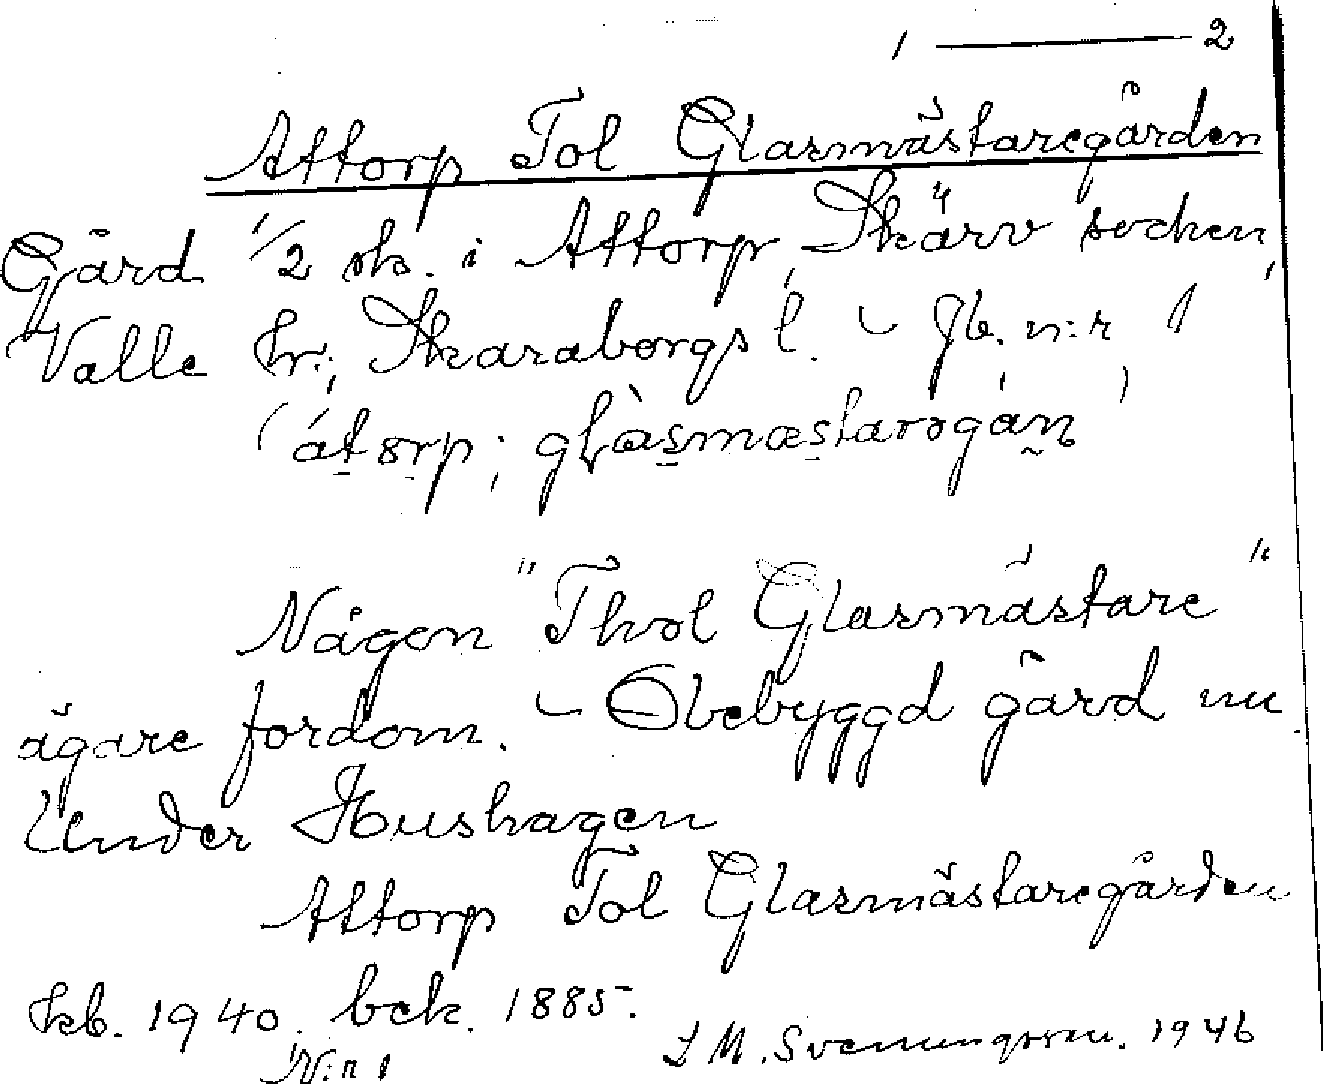 1 — 2
Attorp Tol Glasmästaregården
Gård 1/2 sk. i Attorp, Skärv socken,
Valle hr; Skaraborgs l. – Jb. n:r 1
(átorp; glàsmæstarəgán)
Någon "Thol Glasmästare"
ägare fordom. – Obebyggd gård nu.
Under Hushagen
Attorp Tol Glasmästaregården
kb. 1940. bck. 1885.
N:r 1
I M. Svenungsson. 1946